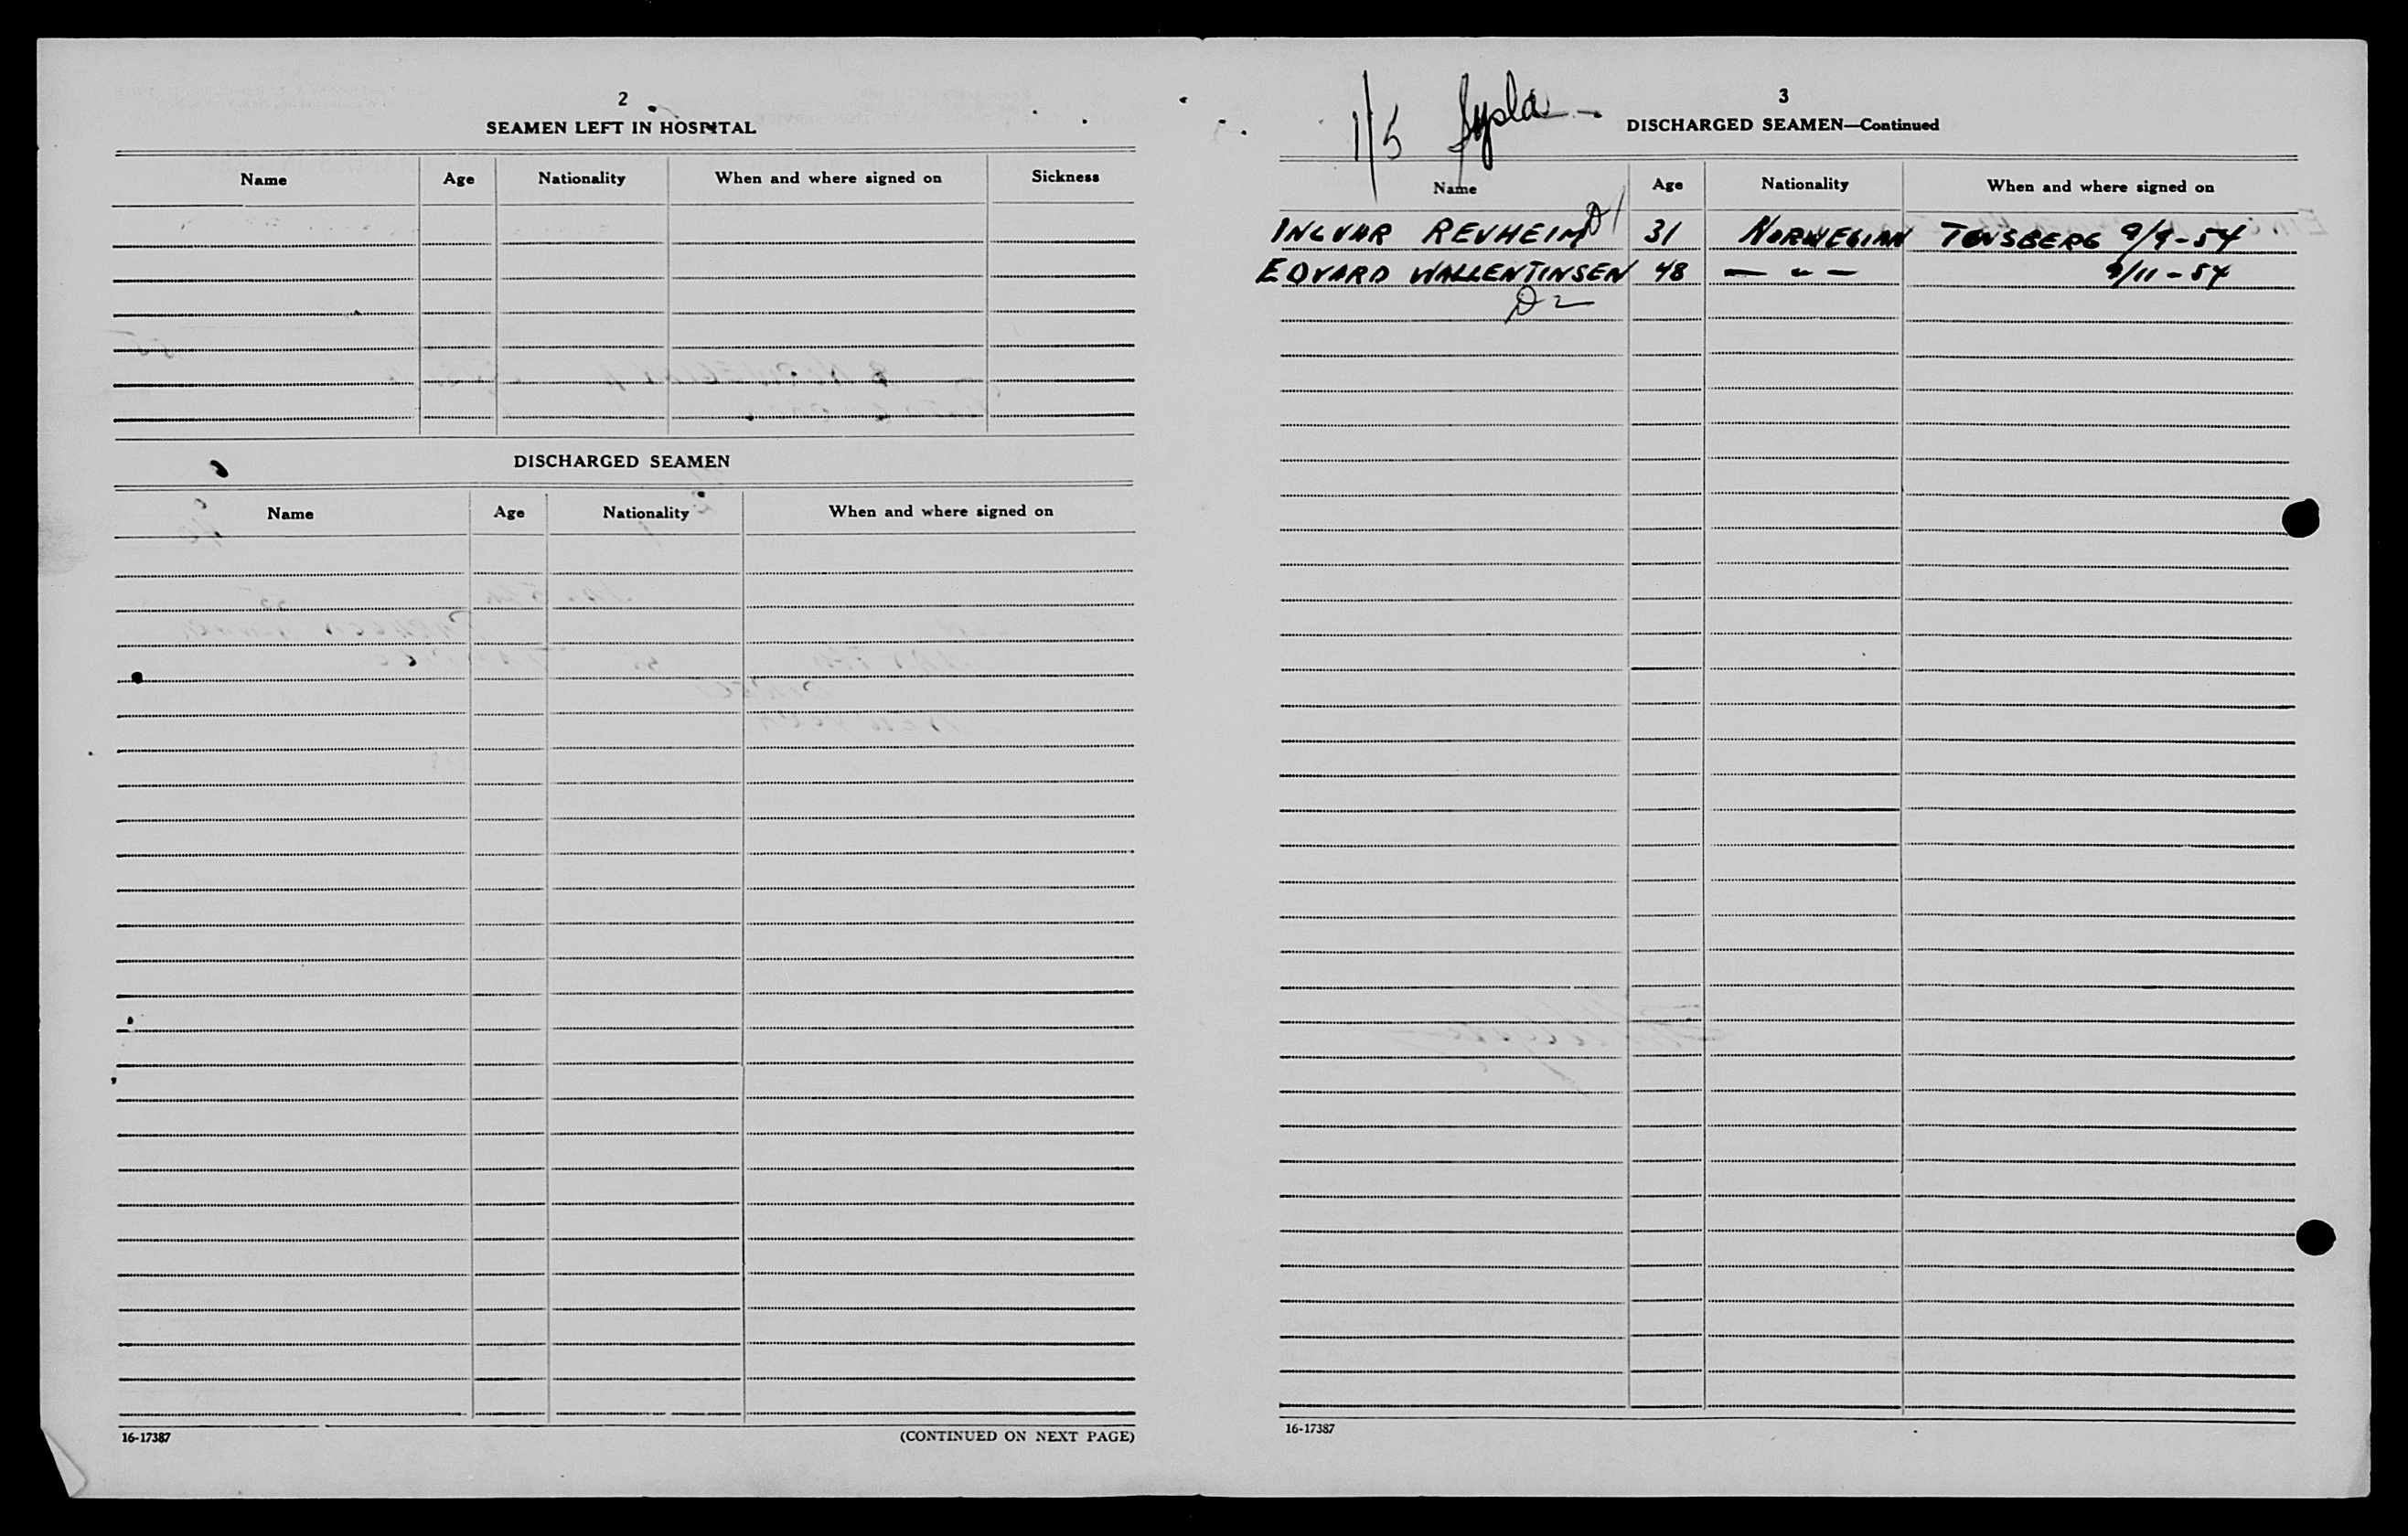 2
SEAMEN LEFT IN HOSPITAL
Name Age Nationality When and where signed on Sickness
DISCHARGED SEAMEN
Name Age Nationality When and where signed on
16-17387 (CONTINUED ON NEXT PAGE)
1/5 Sysla –
3
DISCHARGED SEAMEN—Continued
Name Age Nationality When and where signed on
INGVAR REVHEIM D1 31 NORWEGIAN TØNSBERG 9/9-54
EDVARD WALLENTINSEN 48 — " — 9/11-54
D2
16-17387